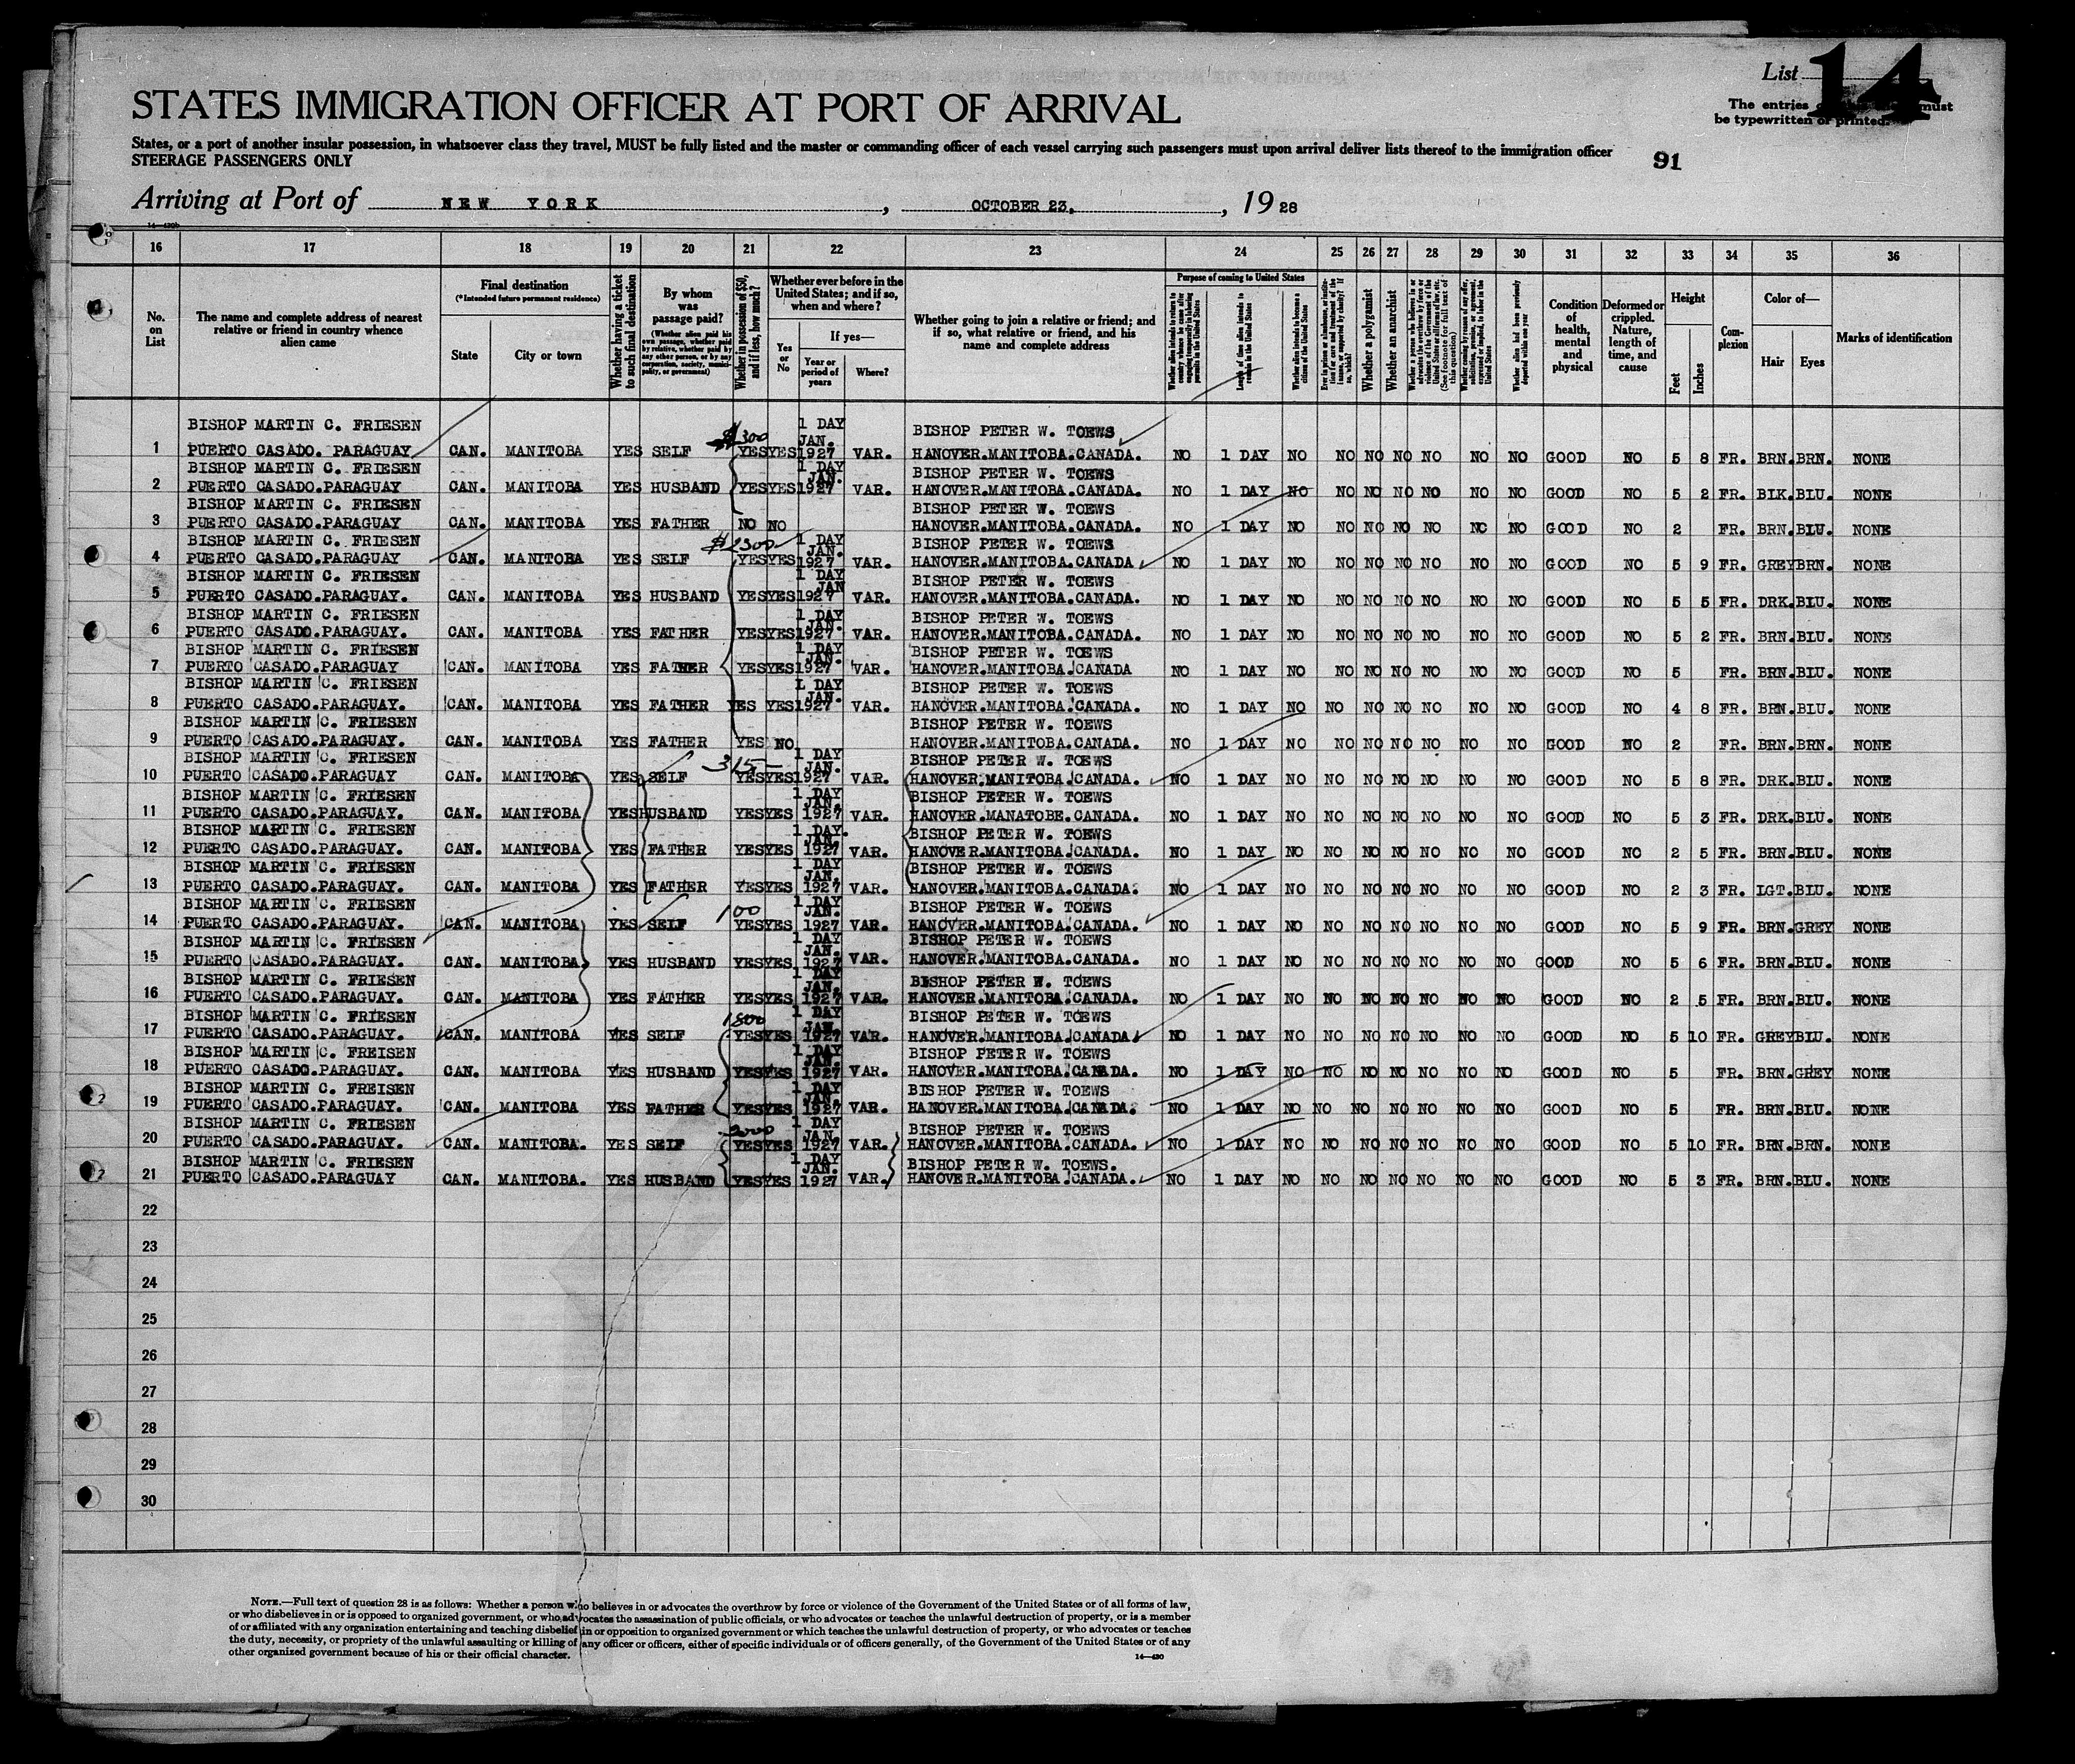 List 14
The entries must
be typewritten or printed.
STATES IMMIGRATION OFFICER AT PORT OF ARRIVAL
States, or a port of another insular possession, in whatsoever class they travel, MUST be fully listed and the master or commanding officer of each vessel carrying such passengers must upon arrival deliver lists thereof to the immigration officer
STEERAGE PASSENGERS ONLY
91
Arriving at Port of NEW YORK, OCTOBER 23, 1928
16 17 18 19 20 21 22 23 24 25 26 27 28 29 30 31 32 33 34 35 36
No. on List
The name and complete address of nearest relative or friend in country whence alien came
Final destination
(*Intended future permanent residence)
State
City or town
Whether having a ticket to such final destination
By whom was passage paid?
(Whether alien paid his own passage, whether paid by relative, whether paid by any other person, or by any corporation, society, municipality, or government)
Whether in possession of $50, and if less, how much?
Whether ever before in the United States; and if so, when and where?
Yes or No
If yes—
Year or period of years
Where?
Whether going to join a relative or friend; and if so, what relative or friend, and his name and complete address
Purpose of coming to United States
Length of time alien intends to remain in the United States
Whether alien intends to become a citizen of the United States
Whether a polygamist
Whether an anarchist
Condition of health, mental and physical
Deformed or crippled. Nature, length of time, and cause
Height
Feet
Inches
Complexion
Color of—
Hair
Eyes
Marks of identification
BISHOP MARTIN C. FRIESEN $300 1 DAY JAN. BISHOP PETER W. TOEWS
1 PUERTO CASADO. PARAGUAY CAN. MANITOBA YES SELF YES YES 1927 VAR. HANOVER.MANITOBA.CANADA. NO 1 DAY NO NO NO NO NO NO NO GOOD NO 5 8 FR. BRN. BRN. NONE
BISHOP MARTIN C. FRIESEN 1 DAY JAN. BISHOP PETER W. TOEWS
2 PUERTO CASADO.PARAGUAY CAN. MANITOBA YES HUSBAND YES YES 1927 VAR. HANOVER.MANITOBA.CANADA. NO 1 DAY NO NO NO NO NO NO NO GOOD NO 5 2 FR. BLK. BLU. NONE
BISHOP MARTIN C. FRIESEN BISHOP PETER W. TOEWS
3 PUERTO CASADO.PARAGUAY CAN. MANITOBA YES FATHER NO NO HANOVER.MANITOBA.CANADA. NO 1 DAY NO NO NO NO NO NO NO GOOD NO 2 FR. BRN. BLU. NONE
BISHOP MARTIN C. FRIESEN $2300 1 DAY JAN. BISHOP PETER W. TOEWS
4 PUERTO CASADO.PARAGUAY CAN. MANITOBA YES SELF YES YES 1927 VAR. HANOVER.MANITOBA.CANADA NO 1 DAY NO NO NO NO NO NO NO GOOD NO 5 9 FR. GREY BRN. NONE
BISHOP MARTIN C. FRIESEN 1 DAY JAN BISHOP PETER W. TOEWS
5 PUERTO CASADO.PARAGUAY. CAN. MANITOBA YES HUSBAND YES YES 1927 VAR. HANOVER.MANITOBA.CANADA. NO 1 DAY NO NO NO NO NO NO NO GOOD NO 5 5 FR. DRK. BLU. NONE
BISHOP MARTIN C. FRIESEN 1 DAY JAN. BISHOP PETER W. TOEWS
6 PUERTO CASADO.PARAGUAY. CAN. MANITOBA YES FATHER YES YES 1927 VAR. HANOVER.MANITOBA.CANADA. NO 1 DAY NO NO NO NO NO NO NO GOOD NO 5 2 FR. BRN. BLU. NONE
BISHOP MARTIN C. FRIESEN 1 DAY JAN. BISHOP PETER W. TOEWS
7 PUERTO CASADO.PARAGUAY CAN. MANITOBA YES FATHER YES YES 1927 VAR. HANOVER.MANITOBA.CANADA NO 1 DAY NO NO NO NO NO NO NO GOOD NO 5 FR. BRN. BLU. NONE
BISHOP MARTIN C. FRIESEN 1 DAY JAN. BISHOP PETER W. TOEWS
8 PUERTO CASADO.PARAGUAY. CAN. MANITOBA YES FATHER YES YES 1927 VAR. HANOVER.MANITOBA.CANADA. NO 1 DAY NO NO NO NO NO NO NO GOOD NO 4 8 FR. BRN. BLU. NONE
BISHOP MARTIN C. FRIESEN BISHOP PETER W. TOEWS
9 PUERTO CASADO.PARAGUAY. CAN. MANITOBA YES FATHER YES NO HANOVER.MANITOBA.CANADA. NO 1 DAY NO NO NO NO NO NO NO GOOD NO 2 FR. BRN. BRN. NONE
BISHOP MARTIN C. FRIESEN 315 1 DAY JAN. BISHOP PETER W. TOEWS
10 PUERTO CASADO.PARAGUAY CAN. MANITOBA YES SELF YES YES 1927 VAR. HANOVER.MANITOBA.CANADA. NO 1 DAY NO NO NO NO NO NO NO GOOD NO 5 8 FR. DRK. BLU. NONE
BISHOP MARTIN C. FRIESEN 1 DAY JAN. BISHOP PETER W. TOEWS
11 PUERTO CASADO.PARAGUAY. CAN. MANITOBA YES HUSBAND YES YES 1927 VAR. HANOVER.MANATOBE.CANADA. NO 1 DAY NO NO NO NO NO NO NO GOOD NO 5 3 FR. DRK. BLU. NONE
BISHOP MARTIN C. FRIESEN 1 DAY. JAN. BISHOP PETER W. TOEWS
12 PUERTO CASADO.PARAGUAY. CAN. MANITOBA YES FATHER YES YES 1927 VAR. HANOVER.MANITOBA.CANADA. NO 1 DAY NO NO NO NO NO NO NO GOOD NO 2 5 FR. BRN. BLU. NONE
BISHOP MARTIN C. FRIESEN 1 DAY JAN. BISHOP PETER W. TOEWS
13 PUERTO CASADO.PARAGUAY. CAN. MANITOBA YES FATHER YES YES 1927 VAR. HANOVER.MANITOBA.CANADA. NO 1 DAY NO NO NO NO NO NO NO GOOD NO 2 3 FR. LGT. BLU. NONE
BISHOP MARTIN C. FRIESEN 100 1 DAY JAN. BISHOP PETER W. TOEWS
14 PUERTO CASADO.PARAGUAY. CAN. MANITOBA YES SELF YES YES 1927 VAR. HANOVER.MANITOBA.CANADA. NO 1 DAY NO NO NO NO NO NO NO GOOD NO 5 9 FR. BRN. GREY NONE
BISHOP MARTIN C. FRIESEN 1 DAY JAN. BISHOP PETER W. TOEWS
15 PUERTO CASADO.PARAGUAY. CAN. MANITOBA. YES HUSBAND YES YES 1927 VAR. HANOVER.MANITOBA.CANADA. NO 1 DAY NO NO NO NO NO NO NO GOOD NO 5 6 FR. BRN. BLU. NONE
BISHOP MARTIN C. FRIESEN 1 DAY JAN. BISHOP PETER W. TOEWS
16 PUERTO CASADO.PARAGUAY. CAN. MANITOBA YES FATHER YES YES 1927 VAR. HANOVER.MANITOBA.CANADA. NO 1 DAY NO NO NO NO NO NO NO GOOD NO 2 5 FR. BRN. BLU. NONE
BISHOP MARTIN C. FRIESEN 1800 1 DAY JAN. BISHOP PETER W. TOEWS
17 PUERTO CASADO.PARAGUAY. CAN. MANITOBA YES SELF YES YES 1927 VAR. HANOVER.MANITOBA.CANADA. NO 1 DAY NO NO NO NO NO NO NO GOOD NO 5 10 FR. GREY BLU. NONE
BISHOP MARTIN C. FREISEN 1 DAY JAN. BISHOP PETER W. TOEWS
18 PUERTO CASADO.PARAGUAY. CAN. MANITOBA YES HUSBAND YES YES 1927 VAR. HANOVER.MANITOBA.CANADA. NO 1 DAY NO NO NO NO NO NO NO GOOD NO 5 FR. BRN. GREY NONE
BISHOP MARTIN C. FREISEN 1 DAY JAN. BISHOP PETER W. TOEWS
19 PUERTO CASADO.PARAGUAY. CAN. MANITOBA YES FATHER YES YES 1927 VAR. HANOVER.MANITOBA.CANADA. NO 1 DAY NO NO NO NO NO NO NO GOOD NO 5 FR. BRN. BLU. NONE
BISHOP MARTIN C. FRIESEN 1 DAY JAN. BISHOP PETER W. TOEWS
20 PUERTO CASADO.PARAGUAY. CAN. MANITOBA. YES SELF YES YES 1927 VAR. HANOVER.MANITOBA.CANADA. NO 1 DAY NO NO NO NO NO NO NO GOOD NO 5 10 FR. BRN. BRN. NONE
BISHOP MARTIN C. FRIESEN 1 DAY JAN. BISHOP PETER W. TOEWS.
21 PUERTO CASADO.PARAGUAY CAN. MANITOBA. YES HUSBAND YES YES 1927 VAR. HANOVER.MANITOBA.CANADA. NO 1 DAY NO NO NO NO NO NO NO GOOD NO 5 3 FR. BRN. BLU. NONE
22
23
24
25
26
27
28
29
30
NOTE.—Full text of question 28 is as follows: Whether a person who believes in or advocates the overthrow by force or violence of the Government of the United States or of all forms of law,
or who disbelieves in or is opposed to organized government, or who advocates the assassination of public officials, or who advocates or teaches the unlawful destruction of property, or is a member
of or affiliated with any organization entertaining and teaching disbelief in or opposition to organized government or which teaches the unlawful destruction of property, or who advocates or teaches
the duty, necessity, or propriety of the unlawful assaulting or killing of any officer or officers, either of specific individuals or of officers generally, of the Government of the United States or of any
other organized government because of his or their official character.
14—430